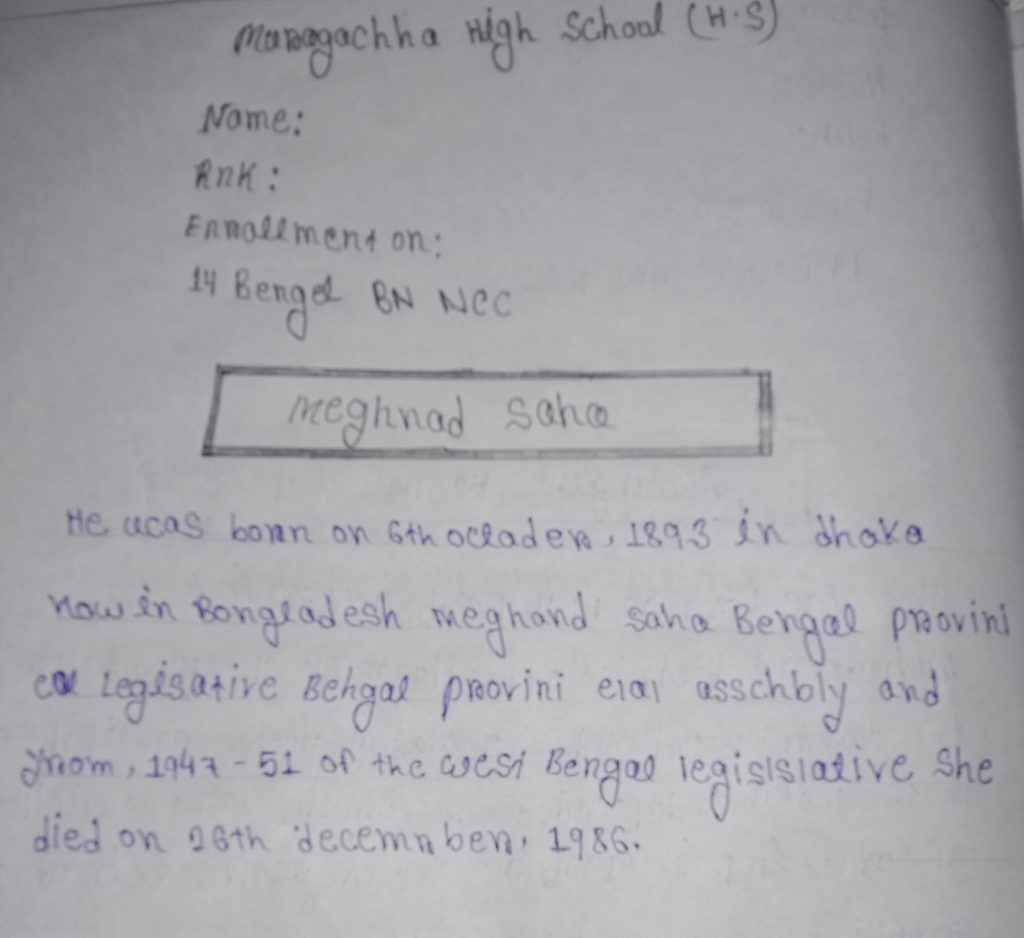 Muragachha High School (H.S)
Name:
Rnk:
Enrollment on:
14 Bengel BN NCC
Meghnad Saha
He was born on 6th octader, 1893 in dhaka
now in Bongladesh meghand saha Bengal provini
cal Legisative Behgal provini eial asschbly and
from, 1947-51 of the west Bengal legisislative She
died on 26th decemnber. 1986.